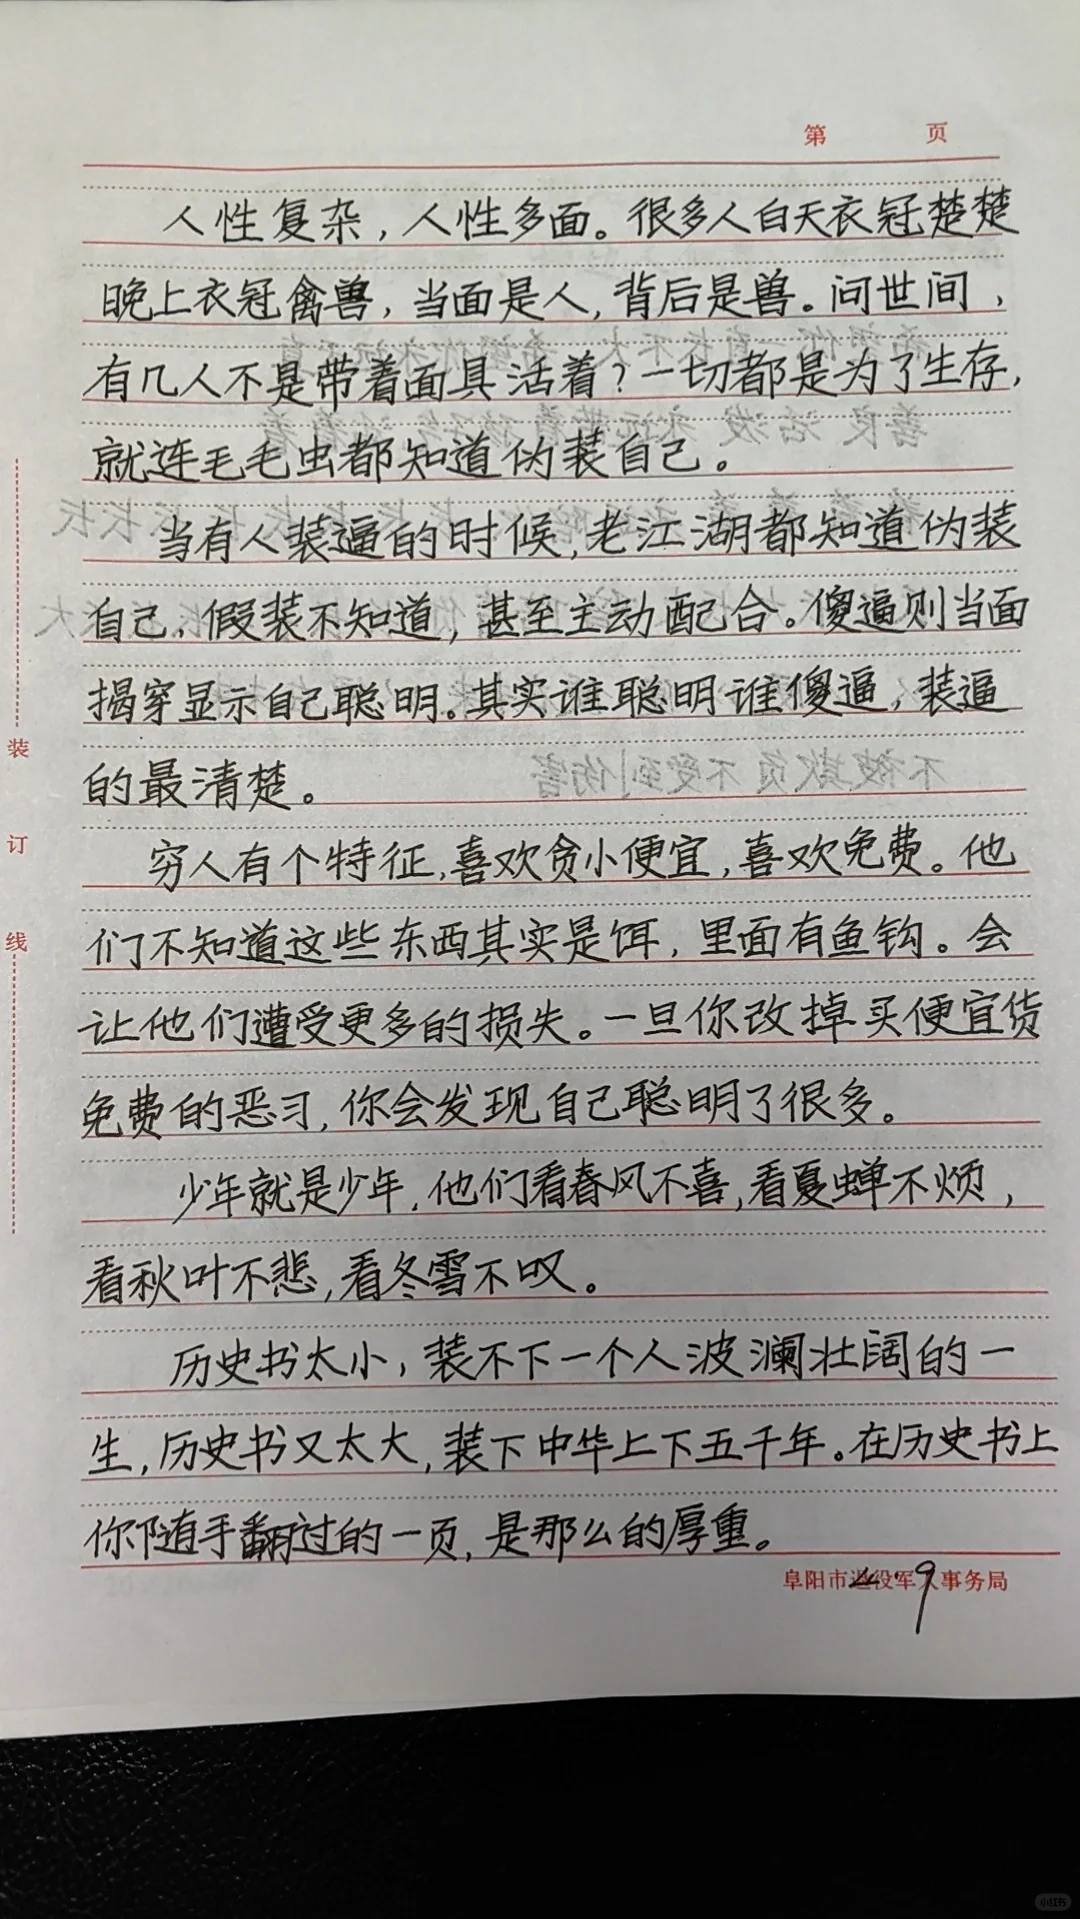 第 页
人性复杂，人性多面。很多人白天衣冠楚楚
晚上衣冠禽兽，当面是人，背后是兽。问世间，
有几人不是带着面具活着？一切都是为了生存，
就连毛毛虫都知道伪装自己。
当有人装逼的时候，老江湖都知道伪装
自己、假装不知道，甚至主动配合。傻逼则当面
揭穿显示自己聪明。其实谁聪明谁傻逼，装逼
的最清楚。
穷人有个特征，喜欢贪小便宜，喜欢免费。他
们不知道这些东西其实是饵，里面有鱼钩。会
让他们遭受更多的损失。一旦你改掉买便宜货
免费的恶习，你会发现自己聪明了很多。
少年就是少年，他们看春风不喜，看夏蝉不烦，
看秋叶不悲，看冬雪不叹。
历史书太小，装不下一个人波澜壮阔的一
生，历史书又太大，装下中华上下五千年。在历史书上
你随手翻过的一页，是那么的厚重。
阜阳市退役军人事务局
4.9
装
订
线
小红书